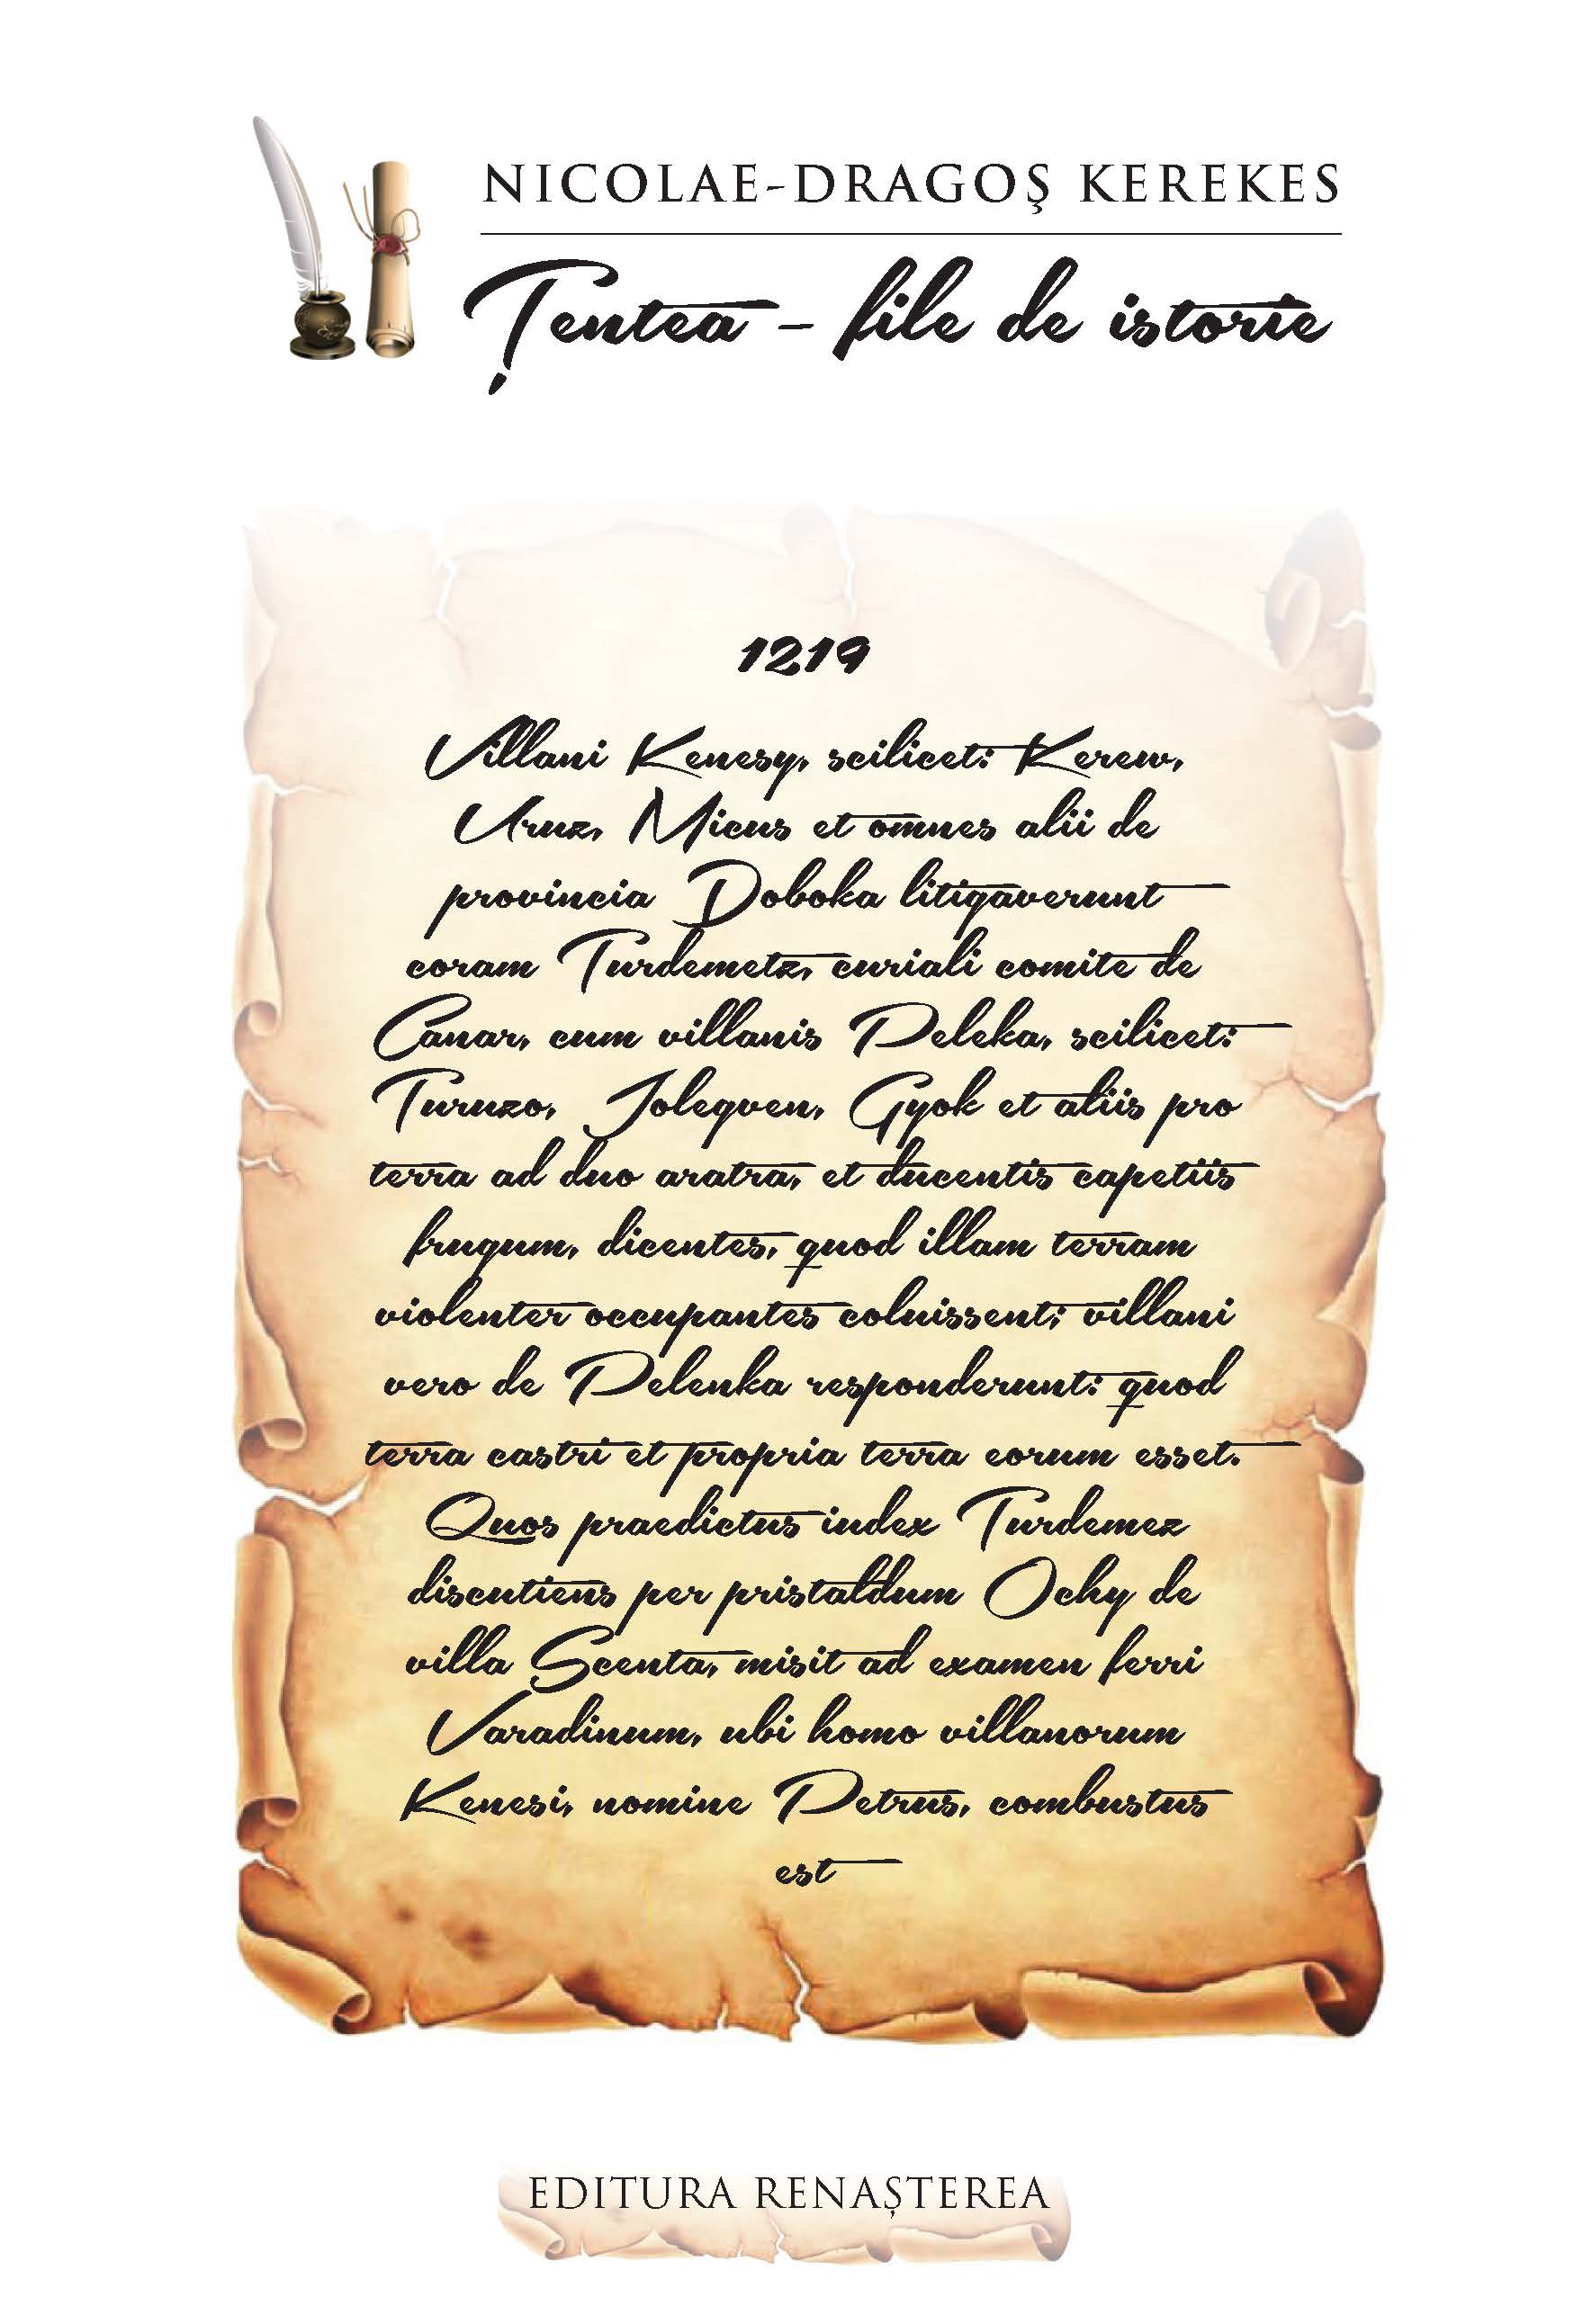 NICOLAE-DRAGOŞ KEREKES
Țentea - file de istorie
1219
Villani Kenesy, scilicet: Kerew,
Uruz, Micus et omnes alii de
provincia Doboka litigaverunt
coram Turdemetz, curiali comite de
Canar, cum villanis Peleka, scilicet:
Turuzo, Jolegven, Gyok et aliis pro
terra ad duo aratra, et ducentis capetiis
frugum, dicentes, quod illam terram
violenter occupantes coluissent; villani
vero de Pelenka responderunt: quod
terra castri et propria terra eorum esset.
Quos praedictus iudex Turdemez
discutiens per pristaldum Ochy de
villa Scenta, misit ad examen ferri
Varadinum, ubi homo villanorum
Kenesi, nomine Petrus, combustus
est
EDITURA RENAȘTEREA